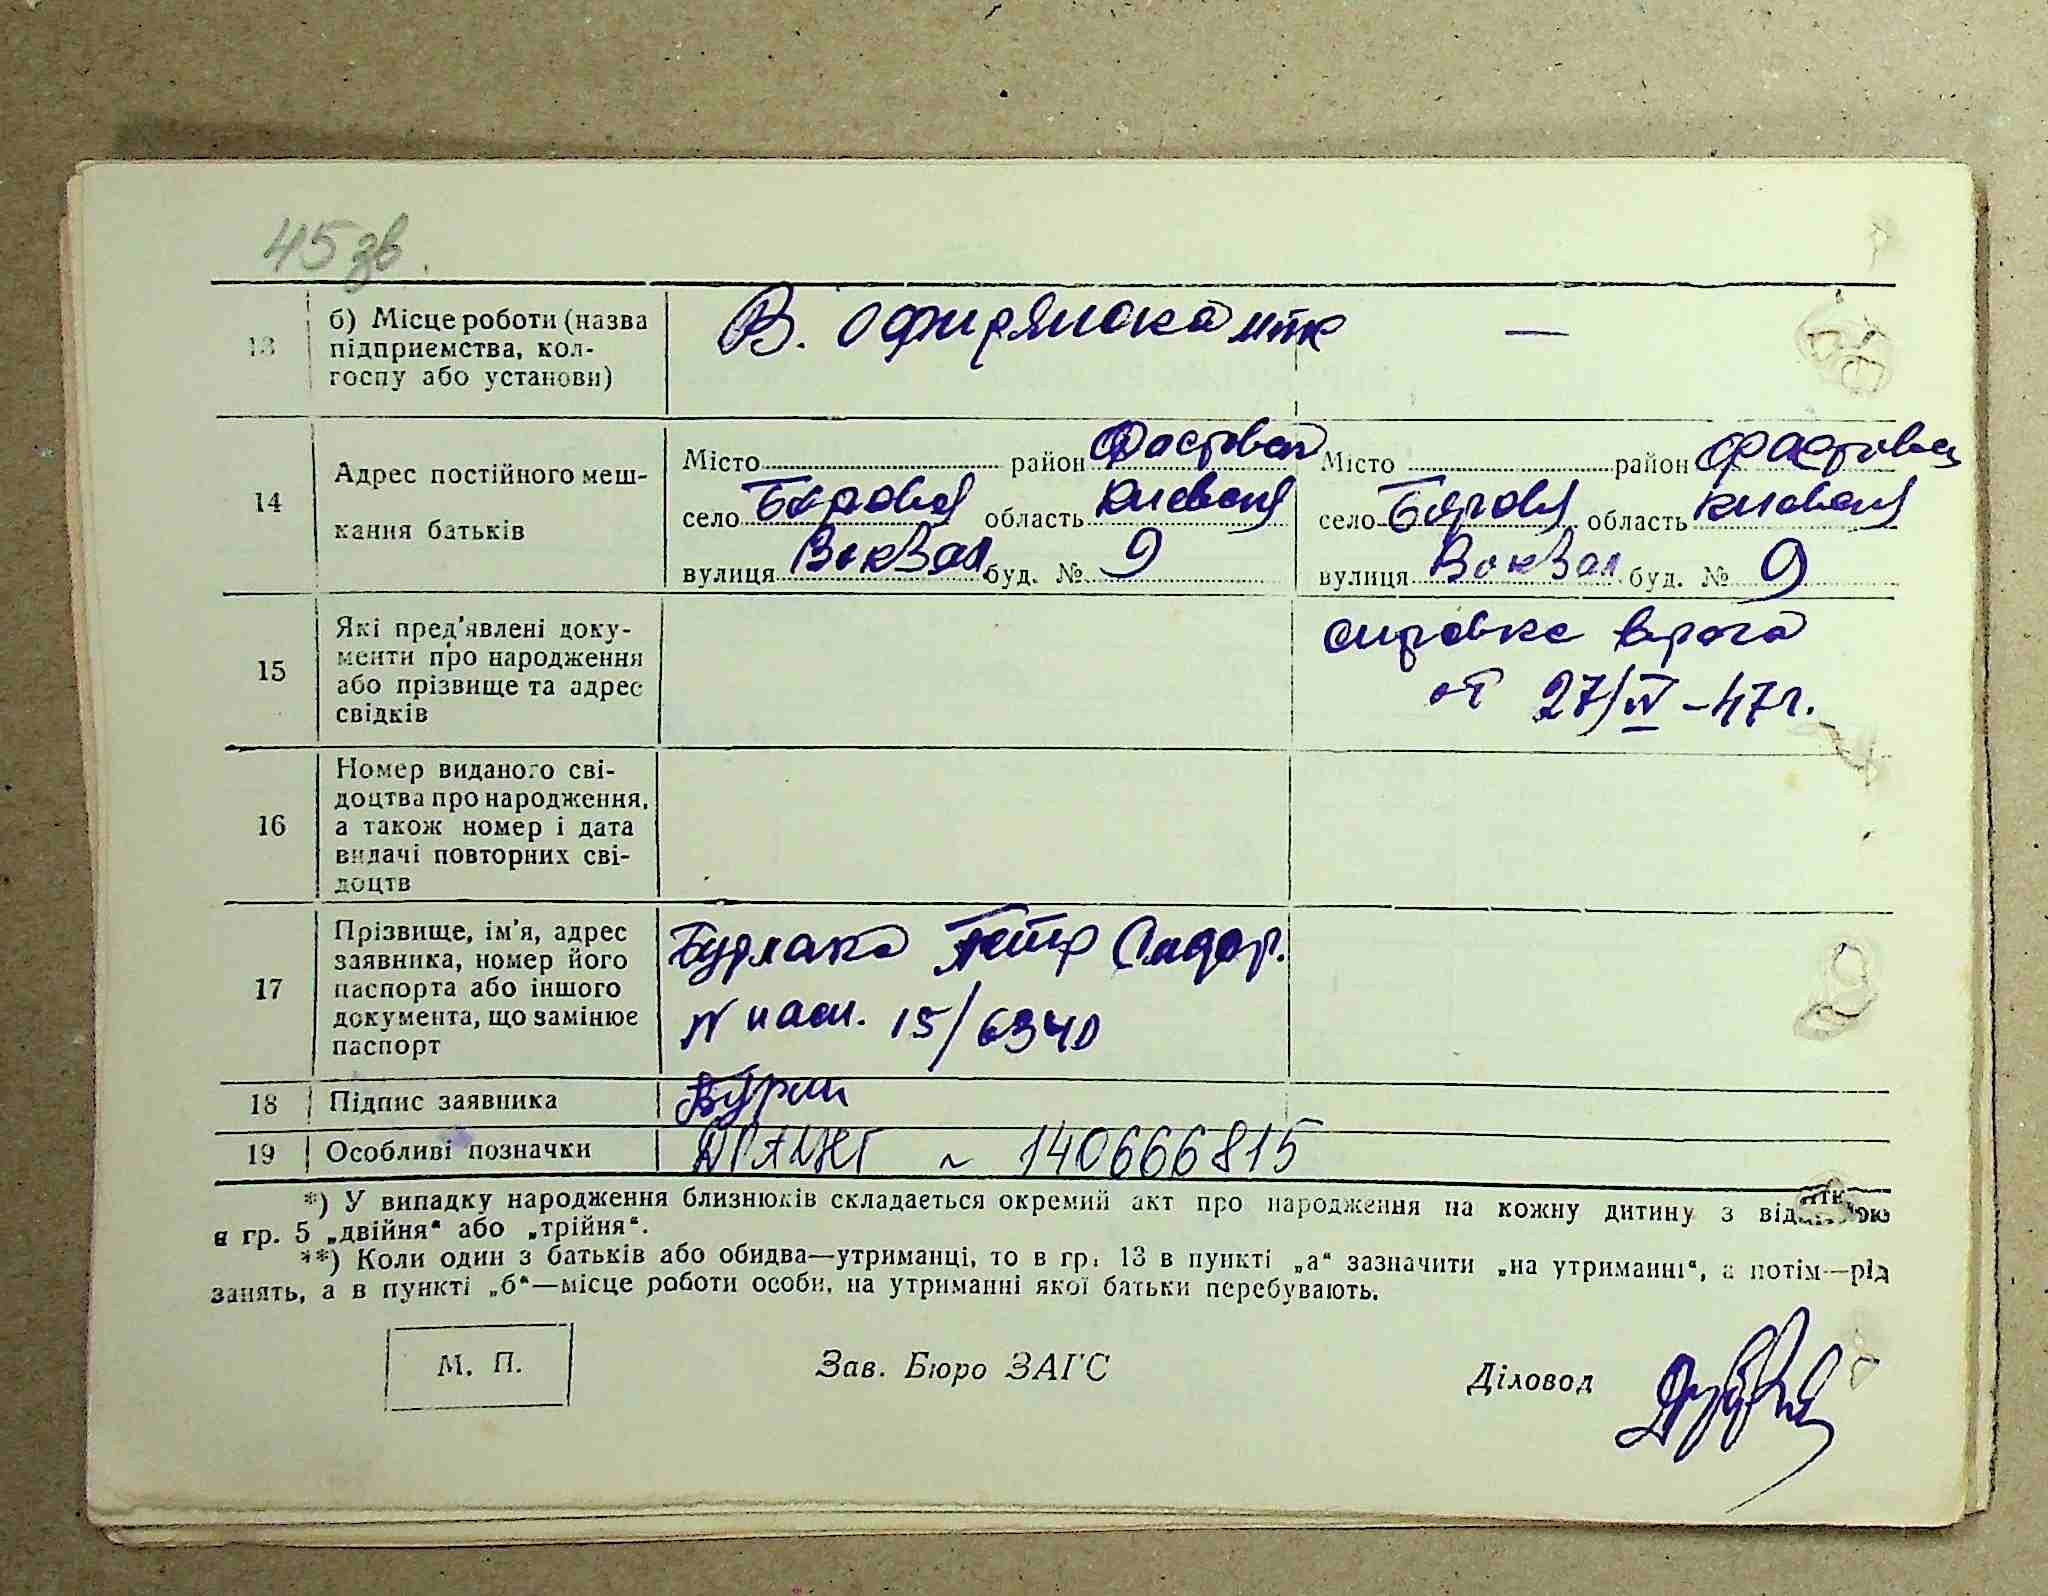 45 зв.
13
б) Місце роботи (назва
підприємства, кол-
госпу або установи)
В. Офирянска мтк —
14
Адрес постійного меш-
кання батьків
Місто район Фастовск
село Боровая область Киевская
вулиця Вокзал буд. № 9
Місто район Фастовск
село Боровая область Киевская
вулиця Вокзал буд. № 9
15
Які пред'явлені доку-
менти про народження
або прізвище та адрес
свідків
справка врача
от 27/IV-47г.
16
Номер виданого сві-
доцтва про народження,
а також номер і дата
видачі повторних сві-
доцтв
17
Прізвище, ім'я, адрес
заявника, номер його
паспорта або іншого
документа, що замінює
паспорт
Бурлака Петр Сидор.
N пасп. 15/6340
18
Підпис заявника
19
Особливі позначки
~ 140666815
*) У випадку народження близнюків складається окремий акт про народження на кожну дитину з відміткою
в гр. 5 „двійня“ або „трійня“.
**) Коли один з батьків або обидва—утриманці, то в гр. 13 в пункті „а“ зазначити „на утриманні“, а потім—рід
занять, а в пункті „б“—місце роботи особи, на утриманні якої батьки перебувають.
М. П.
Зав. Бюро ЗАГС
Діловод